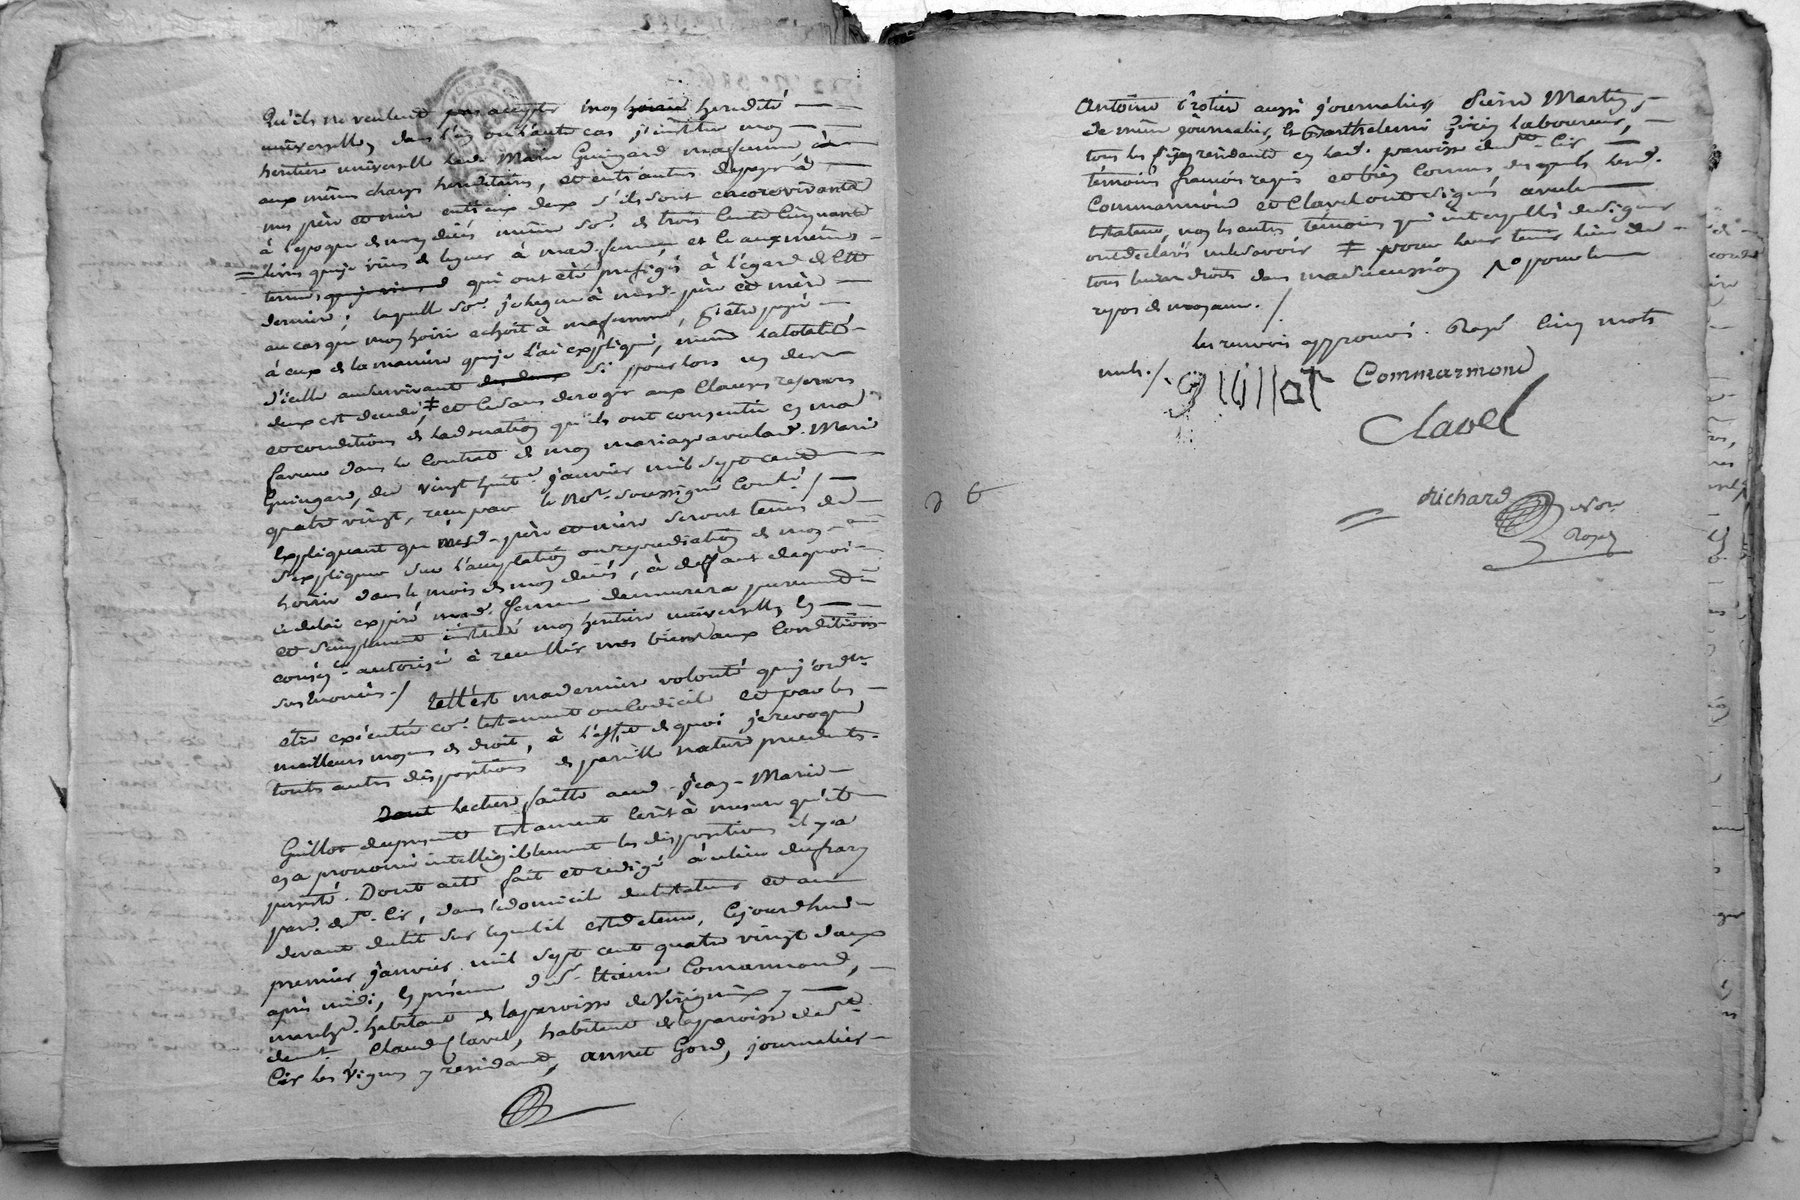 qu'ils ne veulent pas accepter mon hoirie heredité
universelle, dans l'un ou l'autre cas, j'institue mon
heritiere universelle lad. Marie Guingard ma femme à
aux mêmes charges hereditaires, et entr'autres de payer à
mes père et mère entr'eux deux s'ils sont encore vivants
à l'epoque de mon décès même so. de trois cents cinquante
livres que je viens de leguer à mad. femme et ce aux mêmes
termes que je viens qui ont été prefigés à l'égard de cette
derniere; laquelle so. je legue à mesd. père et mère
au cas que mon hoirie echoit à ma femme, p. être payé
à eux de la maniere que je l'ai expliqué, même la totalité
d'icelle au survivant des deux si pour lors un des
deux est decedé, et ce sans deroger aux clauses reserves
et conditions de la donation qu'ils ont consentie en ma
faveur dans le contrat de mon mariage avec lad. Marie
Guingard, du vingt huit janvier mil sept cent
quatre vingt, reçu par le No.re soussigné controlé /
expliquant que mesd. père et mère seront tenus de
s'expliquer sur l'acceptation ou repudiation de mon
hoirie dans le mois de mon décès, à deffaut de quoi
ce delai expiré mad. femme demeurera purement
et simplement instituée mon heritiere universelle, en
conséq. autorisée à recueillir mes biens aux conditions
susenoncées. / telle est ma derniere volonté que j'ord.
être exécutée co. testament ou codicile et par les
meilleurs moyens de droit, à l'effet de quoi je revoque
toutes autres dispositions de pareille nature precedentes.
Dont lecture faitte aud. Jean-Marie
Guillot du present testament ecrit à mesure qu'il
en a prononcé intelligiblement les dispositions il y a
persisté. Dont acte fait et redigé au lieu du
par. de St. Cir, dans le domicile du testateur et au
devant du lit sur lequel il est detenu, cejourdhui
premier janvier mil sept cent quatre vingt deux
après midi, en présence de sr. Etienne Comarmond,
march. habitant de la paroisse de Virigneux y
demt., Claude Clavel, habitant de la paroisse de St.
Cir les Vignes y residant, annet Gord, journalier
antoine Crotier aussi journalier, Pierre Martin,
de même journalier, et Barthelemi laboureur,
tous les residants en lad. paroisse de St. Cir
témoins françois requis et bien connus desquels lesd.
Commarmond et Clavel ont signés avec le
testateur, non les autres témoins qui interpellés de signer
ont declarés ne le savoir ≠ pour leur tenir lieu de
tous leurs droits dans ma succession No. pour le
repos de mon ame. /
les renvois approuvés. Rayé cinq mots
nuls. / guillot Commarmond
Clavel
Richard Nore
Royal